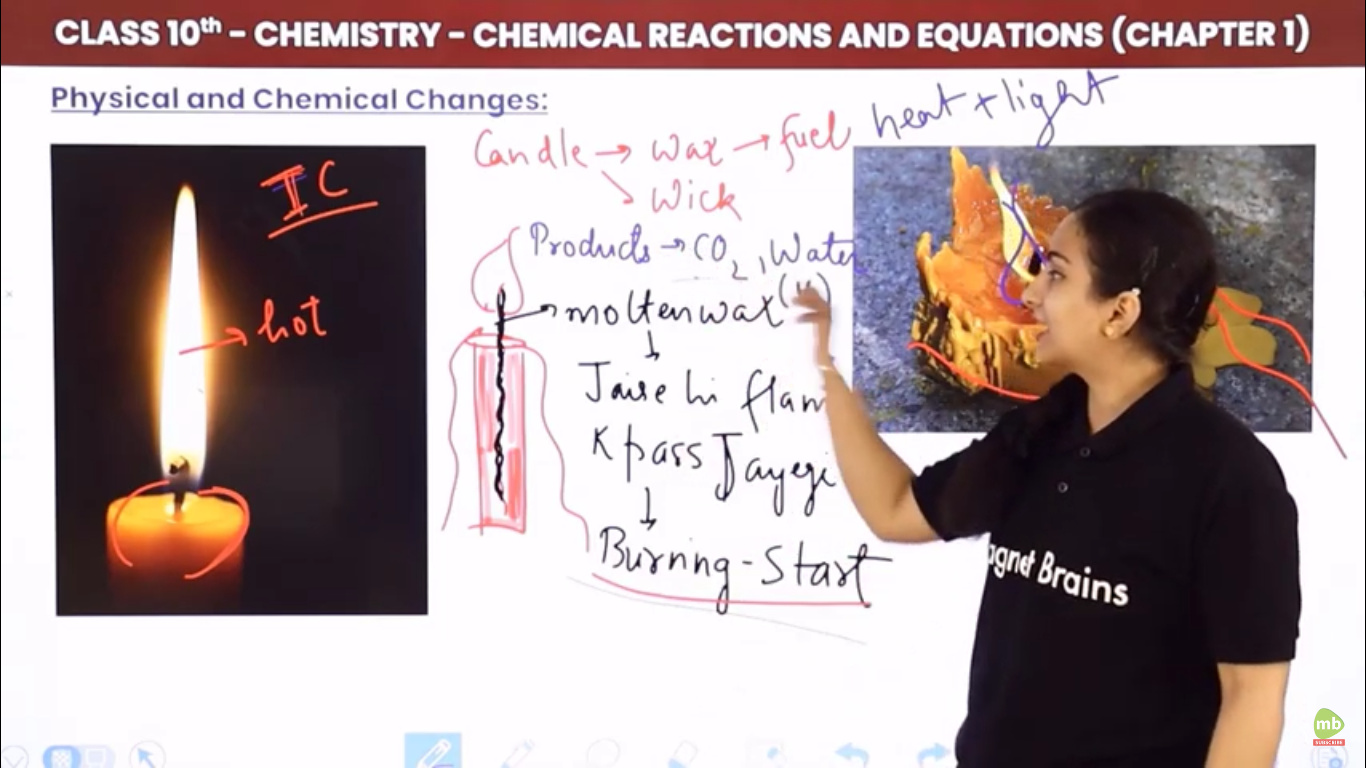 CLASS 10th – CHEMISTRY – CHEMICAL REACTIONS AND EQUATIONS (CHAPTER 1)
Physical and Chemical Changes:
heat + light
Candle → Wax → fuel
↘ Wick
IC
Products → CO2, Water
hot
molten wax
↓
Jaise hi flam
K pass Jayegi
↓
Burning - Start
agnet Brains
mb
SUBSCRIBE